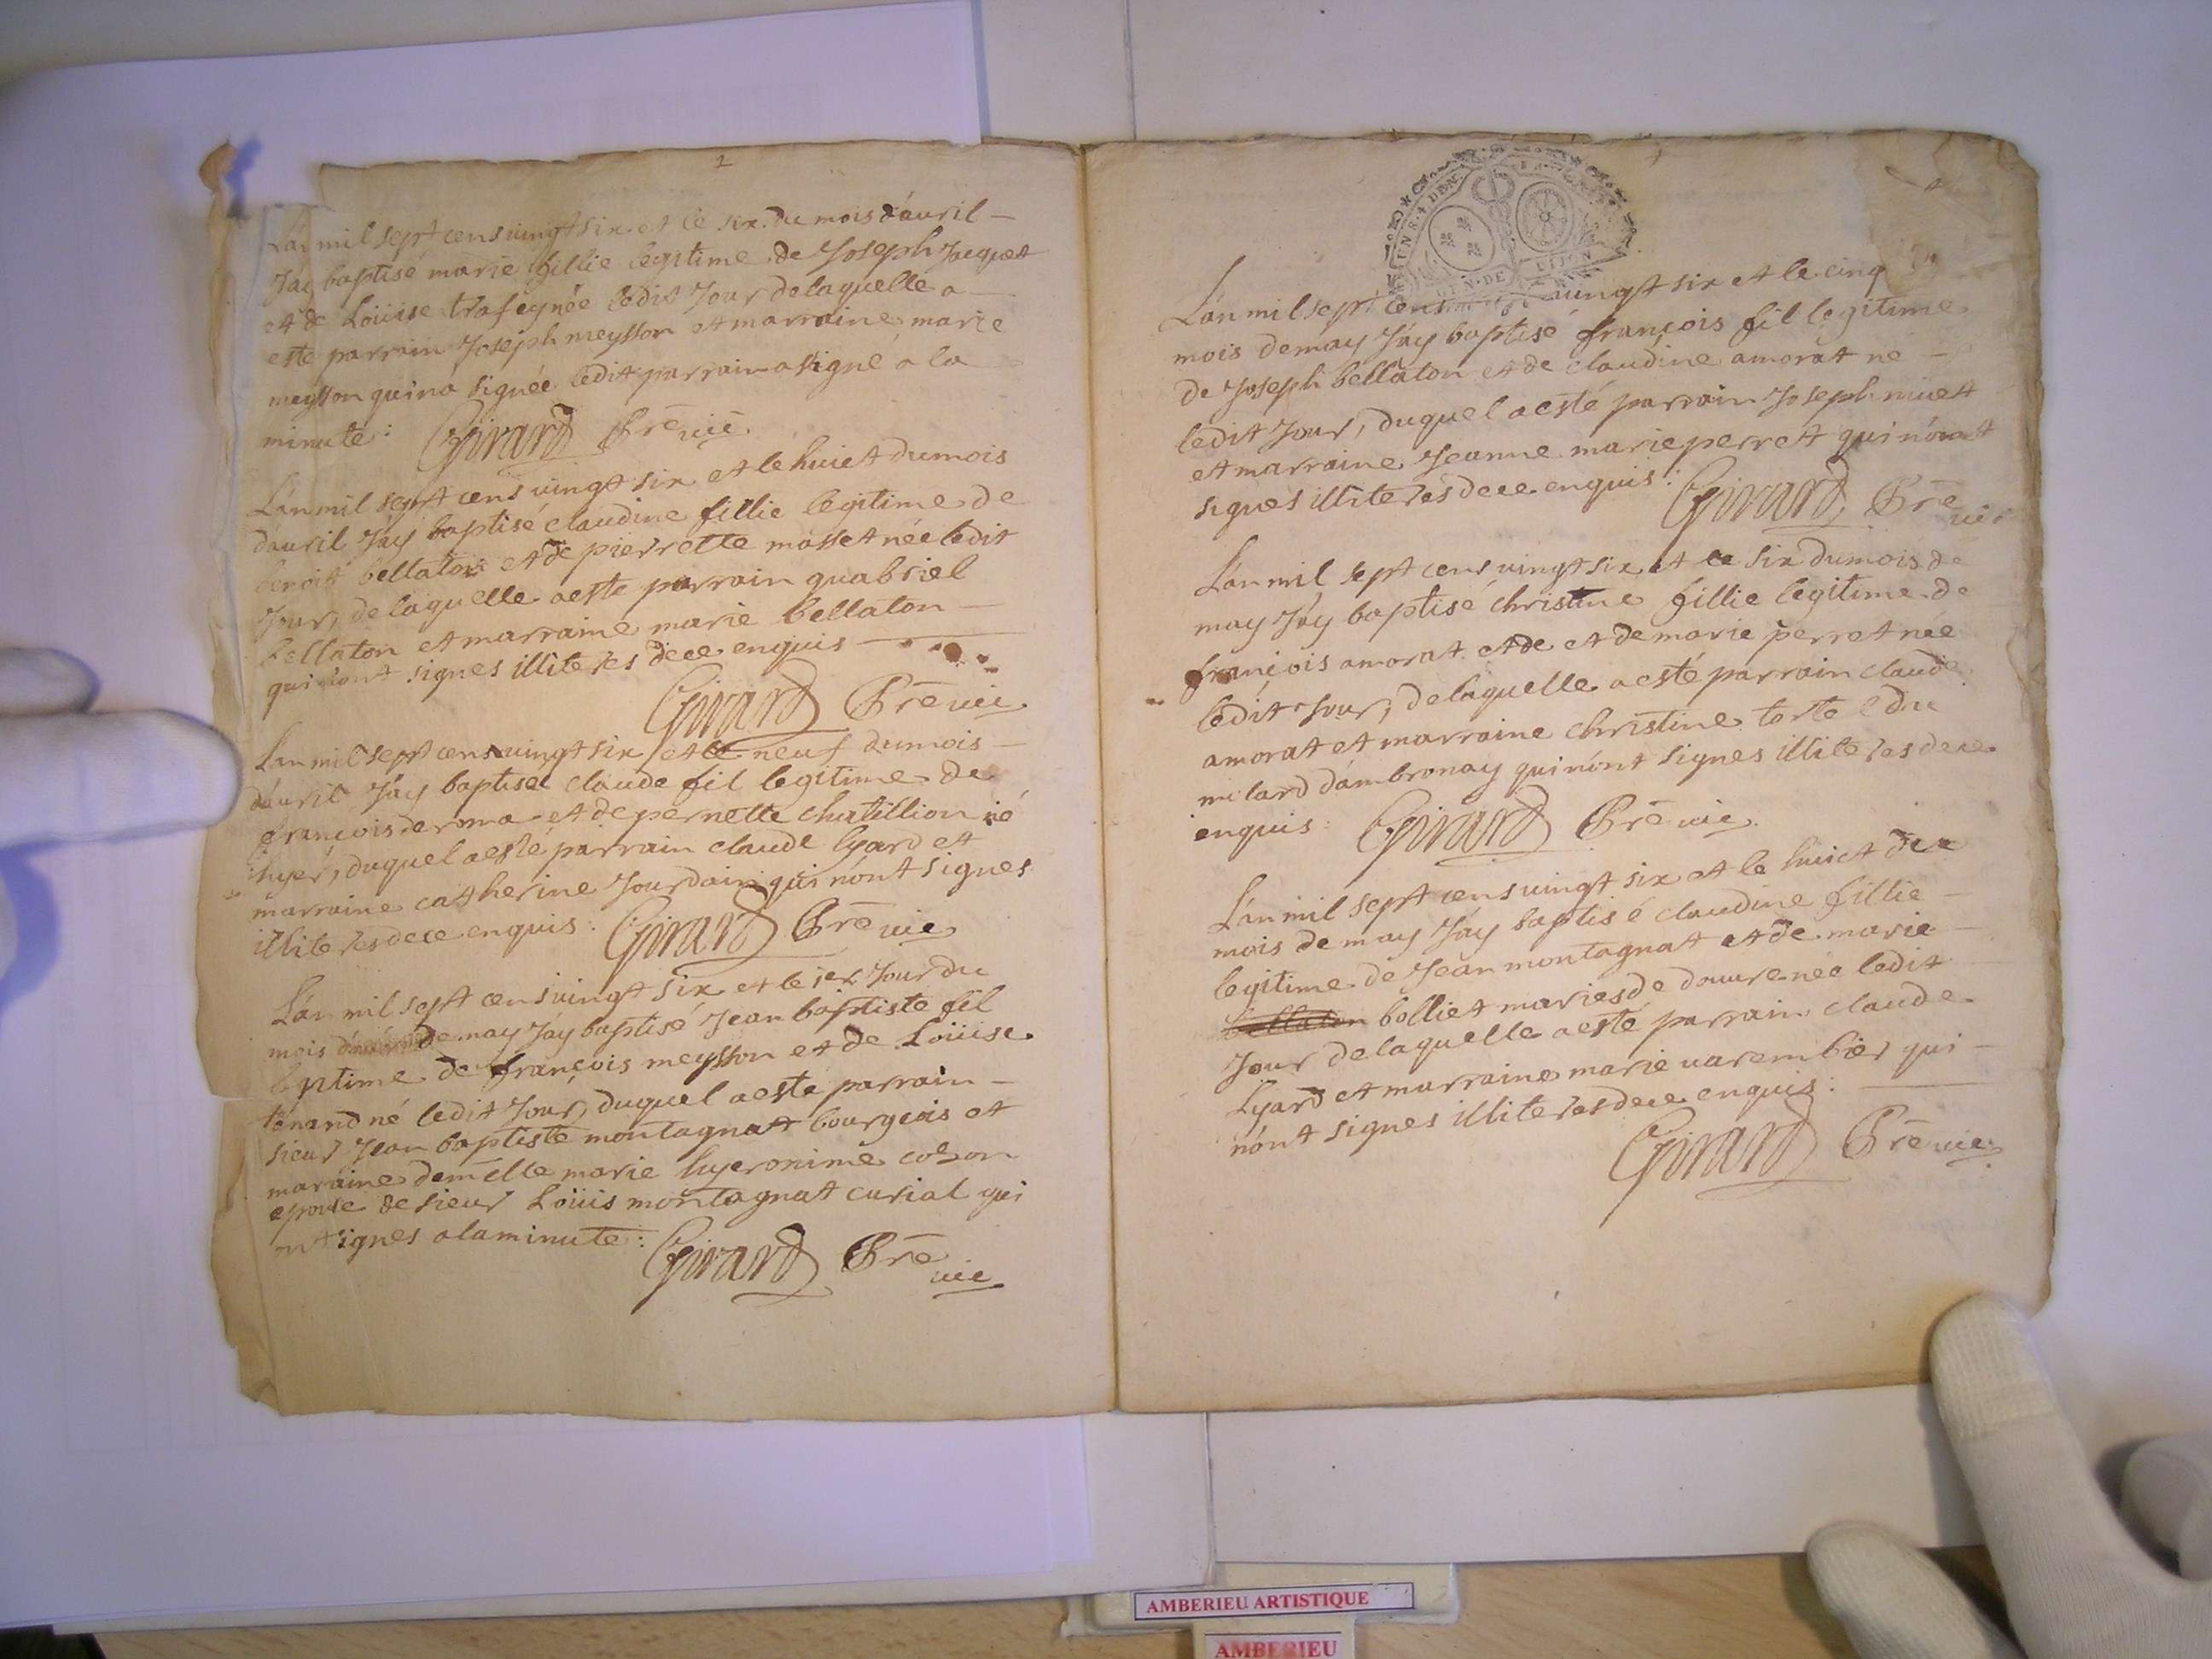 L'an mil sept cens vingt six et le six du mois d'auril
Jáy baptisé marie fillie legitime de Joseph Jacquet
et de Loüise trafey née ledit Jour de laquelle a
este parrain Joseph meysson et marraine marie
meysson qui na signée ledit parrain a signé a la
minute : Girard Prē vic
L'an mil sept cens vingt six et le huict du mois
d'auril Jáy baptisé claudine fillie legitime de
benoit bellaton et de pierrette mosset née ledit
Jour, de laquelle aeste parrain quabriel
bellaton et marraine marie bellaton
qui nont signes illiteres de ce enquis
Girard Prē vic
L'an mil sept cens vingt six et le neuf du mois
dáuril Jáy baptisé claude fil legitime de
françois deroma et de pernette chatillion né
hyer, duquel aesté parrain claude lyard et
marraine catherine Jourdain qui nónt signes
illiteres de ce enquis : Girard Prē vic
L'án mil sept cens vingt six et le 1er Jour du
mois de may Jáy baptisé Jean baptiste fil
legitime de françois meysson et de Loüise
tenand né ledit Jour, duquel aeste parrain
sieur Jean baptiste montagnat bourgeois et
maraine demelle marie hyeronime colson
epouse de sieur Loüis montagnat curial qui
ont signes a la minute : Girard Prē
vic
GEN · DE DIJON
L'án mil sept cens vingt six et le cinq
mois de may Jáy baptisé françois fil legitime
de Joseph bellaton et de claudine amorat né
ledit Jour, duquel aesté parrain Joseph niuet
et marraine Jeanne marie perret qui nónt
signés illiterés de ce enquis : Girard Prē
vic
L'án mil sept cens vingt six et le six du mois de
may Jáy baptisé christine fillie legitime de
françois amorat et de et de marie perret née
ledit Jour, de laquelle aesté parrain claude
amorat et marraine christine tortel du
milard dámbronay qui nónt signes illiteres de ce
enquis : Girard Prē vic
L'án mil sept cens vingt six et le huict du
mois de may Jáy baptisé claudine fillie
legitime de Jean montagnat et de marie
bellaton bolliet mariés de douure née ledit
Jour de laquelle aesté parrain claude
Lyard et marraine marie varembier qui
nónt signes illiteres de ce enquis :
Girard Prē vic
AMBERIEU ARTISTIQUE
AMBERIEU